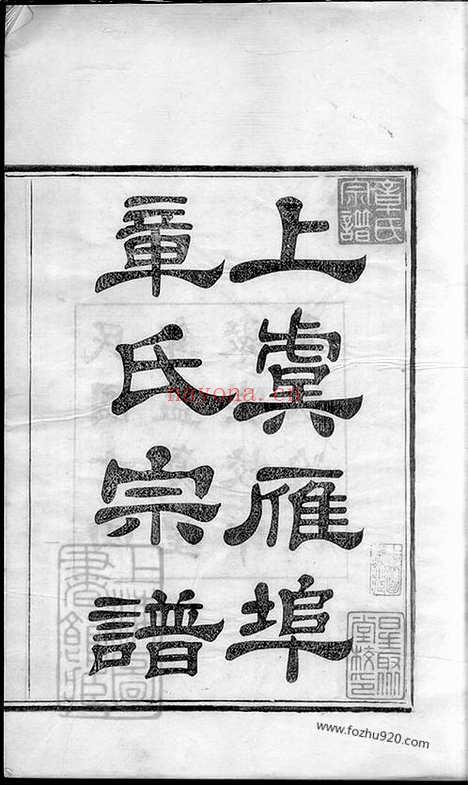 上虞雁埠
章氏宗譜
章氏宗譜
星聚堂校印
nayona.cn
www.fozhu920.com